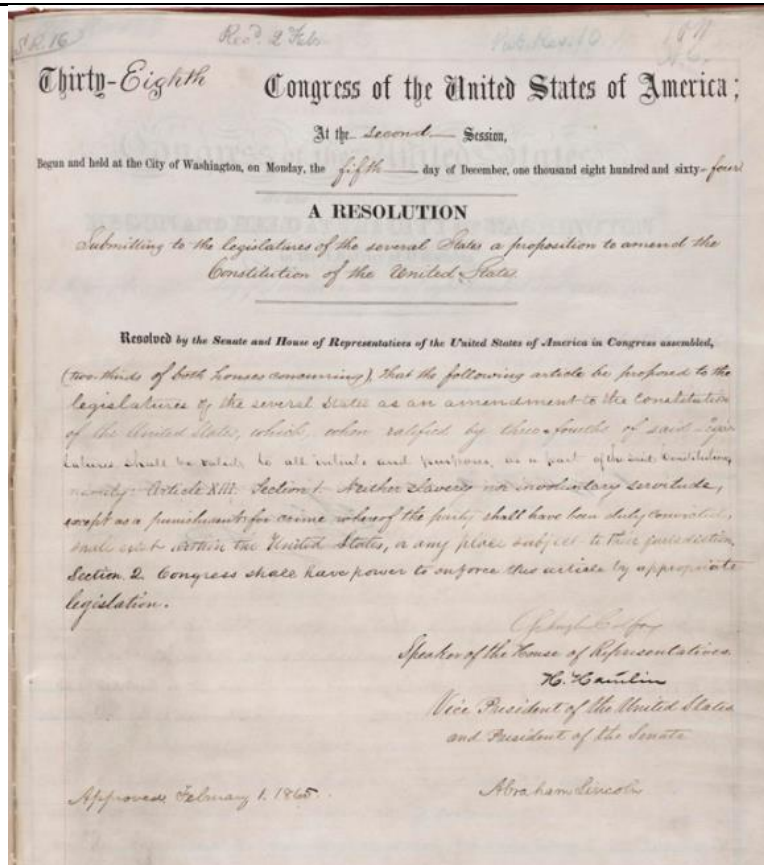 S.R. 16
Recd. 2 Feb
Thirty-Eighth Congress of the United States of America;
At the second Session,
Begun and held at the City of Washington, on Monday, the fifth day of December, one thousand eight hundred and sixty-four
A RESOLUTION
Submitting to the legislatures of the several States a proposition to amend the
Constitution of the United States.
Resolved by the Senate and House of Representatives of the United States of America in Congress assembled,
(two-thirds of both houses concurring), That the following article be proposed to the
legislatures of the several States as an amendment to the Constitution
of the United States, which, when ratified by three-fourths of said Legis-
latures shall be valid, to all intents and purposes, as a part of the said Constitution,
namely: Article XIII. Section 1. Neither slavery nor involuntary servitude,
except as a punishment for crime whereof the party shall have been duly convicted,
shall exist within the United States, or any place subject to their jurisdiction.
Section 2. Congress shall have power to enforce this article by appropriate
legislation.
Schuyler Colfax
Speaker of the House of Representatives.
H. Hamlin
Vice President of the United States
and President of the Senate
Approved, February 1. 1865. Abraham Lincoln